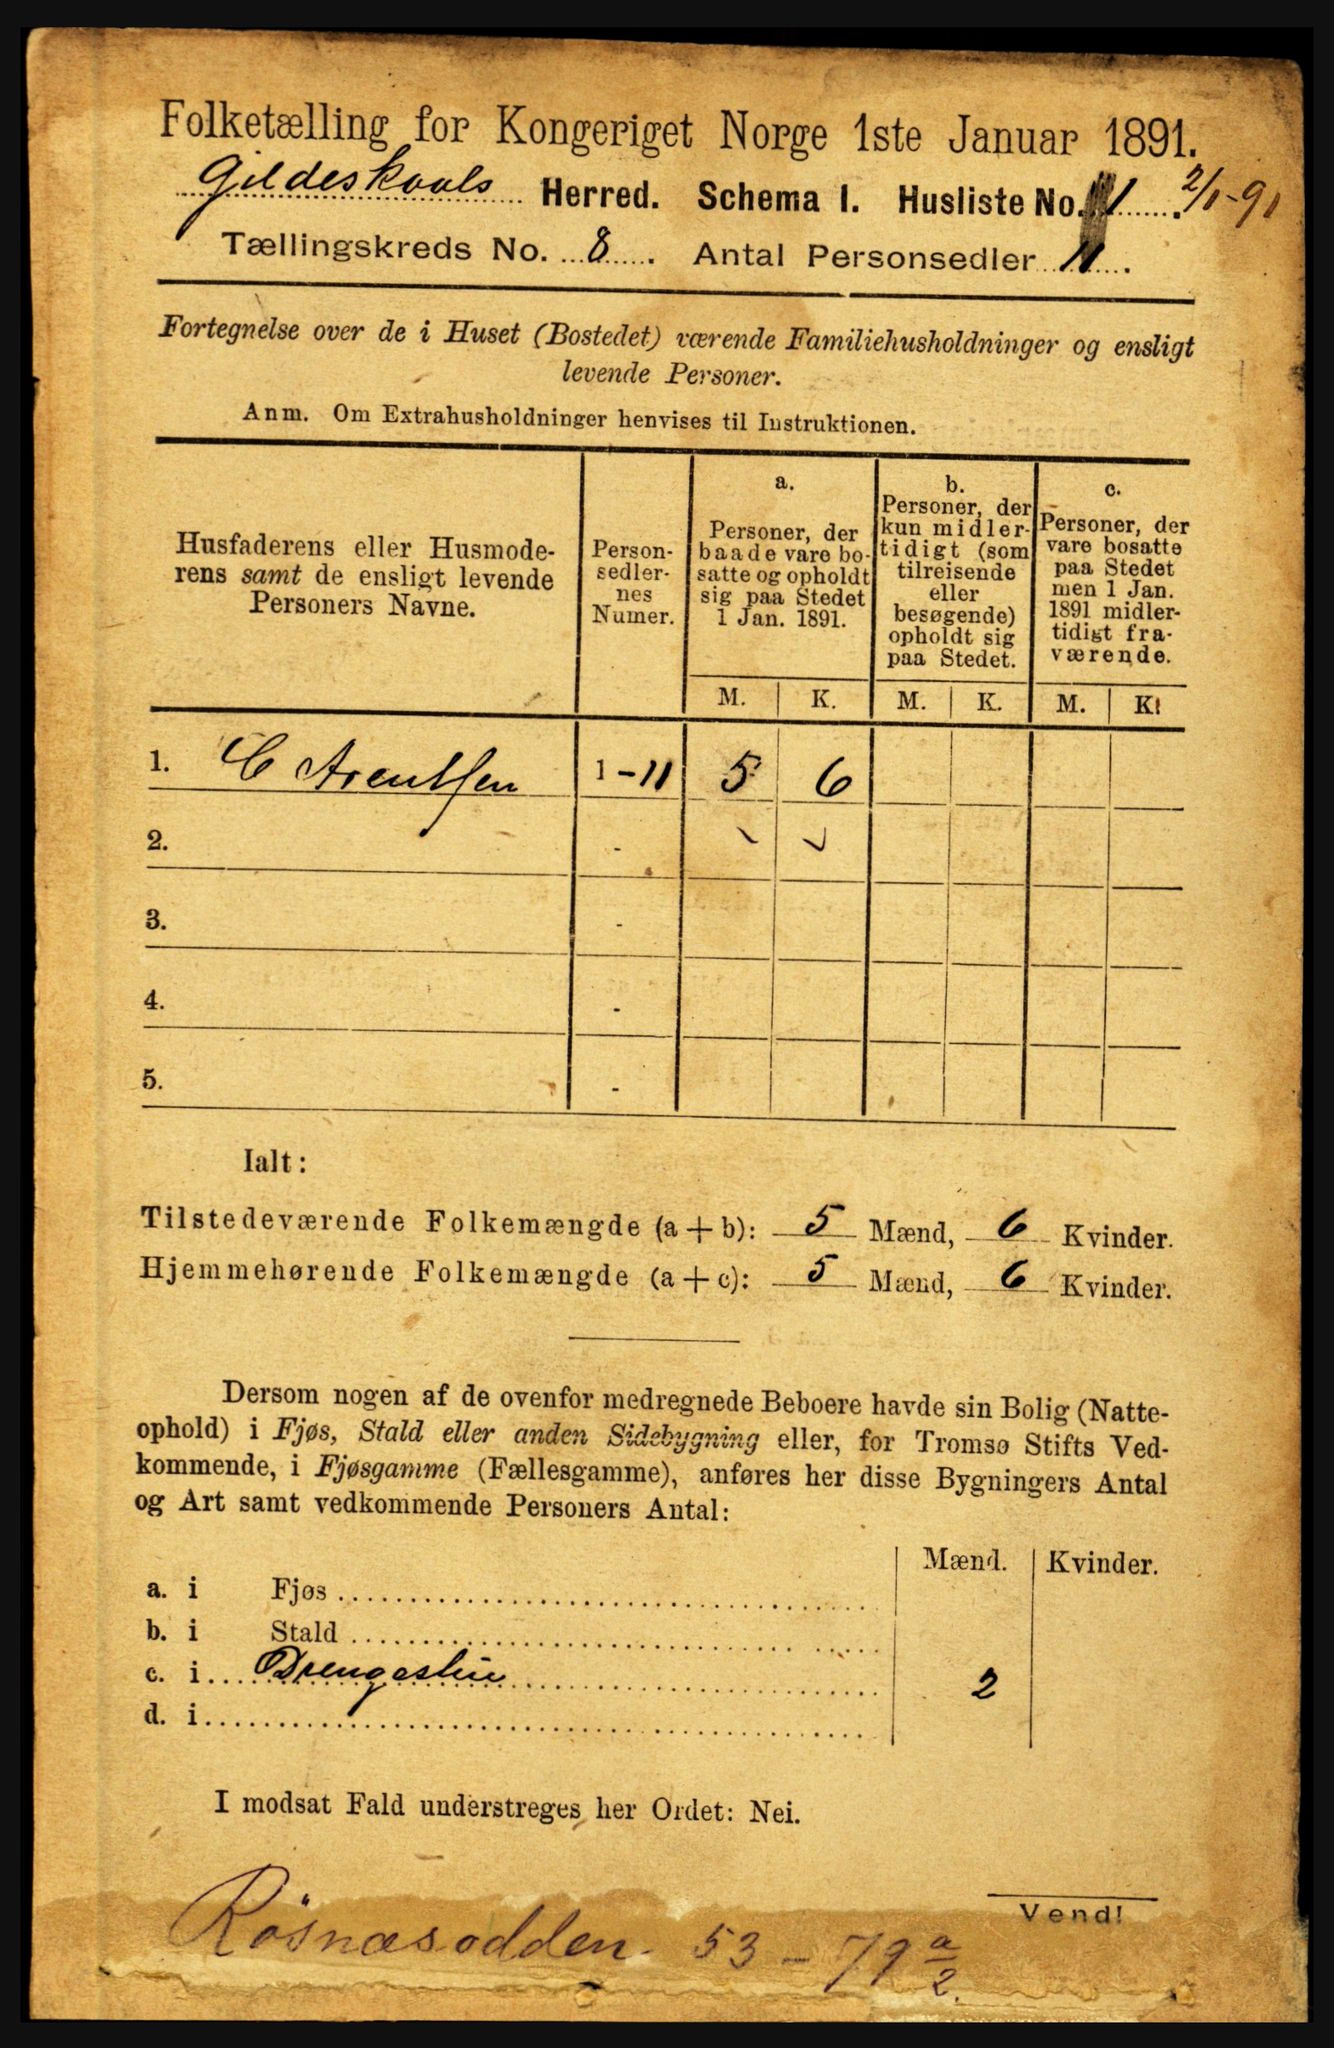 Folketælling for Kongeriget Norge 1ste Januar 1891.
Gildeskaals Herred. Schema I. Husliste No. 1. 2/1-91
Tællingskreds No. 8. Antal Personsedler 11.
Fortegnelse over de i Huset (Bostedet) værende Familiehusholdninger og ensligt
levende Personer.
Anm. Om Extrahusholdninger henvises til Instruktionen.
Husfaderens eller Husmode-
rens samt de ensligt levende
Personers Navne.
Person-
sedler-
nes
Numer.
a.
Personer, der
baade vare bo-
satte og opholdt
sig paa Stedet
1 Jan. 1891.
b.
Personer, der
kun midler-
tidigt (som
tilreisende
eller
besøgende)
opholdt sig
paa Stedet.
c.
Personer, der
vare bosatte
paa Stedet
men 1 Jan.
1891 midler-
tidigt fra-
værende.
M. K. M. K. M. K.
1. C Arentsen 1-11 5 6
2. -
3. -
4. -
5. -
Ialt:
Tilstedeværende Folkemængde (a + b): 5 Mænd, 6 Kvinder.
Hjemmehørende Folkemængde (a + c): 5 Mænd, 6 Kvinder.
Dersom nogen af de ovenfor medregnede Beboere havde sin Bolig (Natte-
ophold) i Fjøs, Stald eller anden Sidebygning eller, for Tromsø Stifts Ved-
kommende, i Fjøsgamme (Fællesgamme), anføres her disse Bygningers Antal
og Art samt vedkommende Personers Antal:
Mænd. Kvinder.
a. i Fjøs
b. i Stald
c. i Drengestue 2
d. i
I modsat Fald understreges her Ordet: Nei.
Vend!
Rösnæsodden 53-79 a/2.